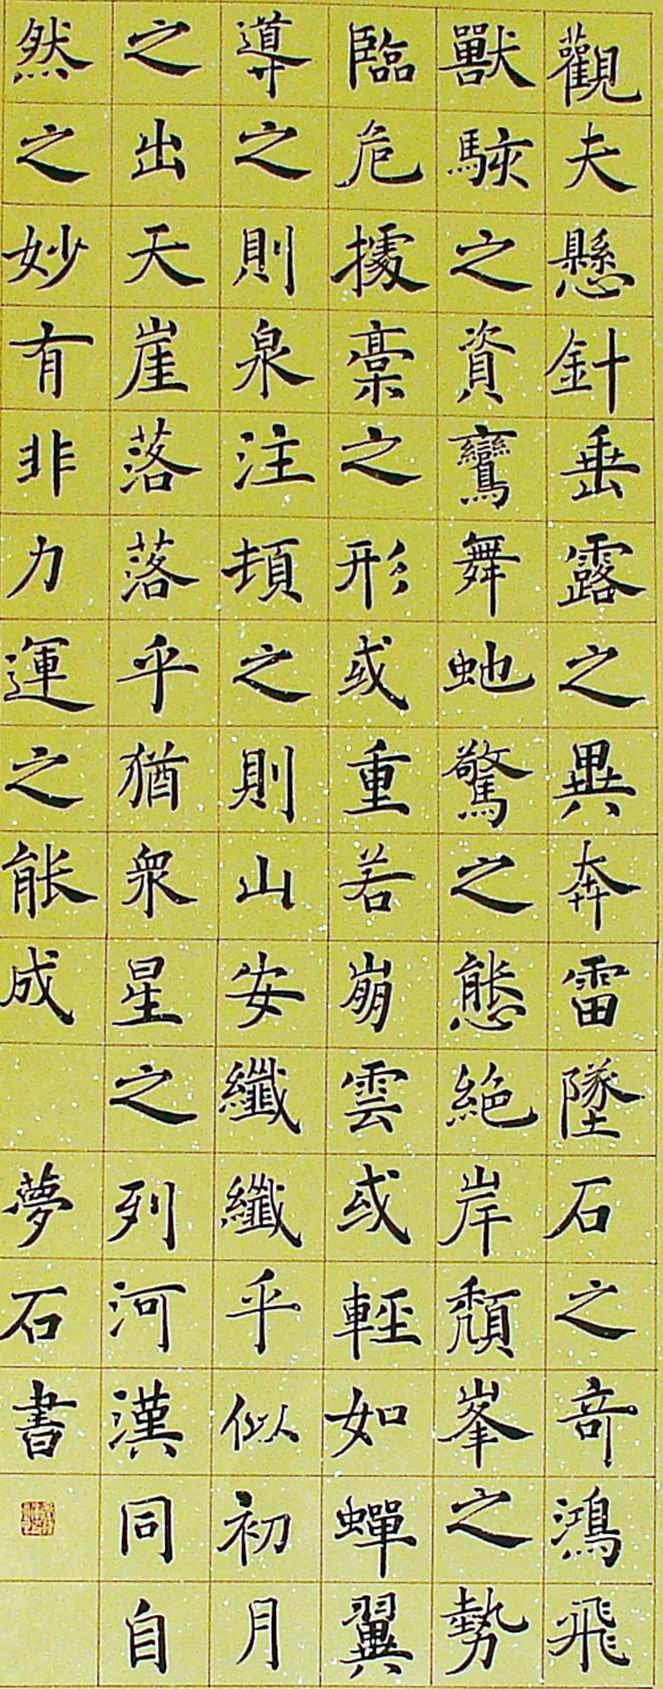 觀夫懸針垂露之異奔雷墜石之奇鴻飛
獸駭之資鸞舞虵驚之態絶岸頹峯之勢
臨危據槀之形或重若崩雲或輕如蟬翼
導之則泉注頓之則山安纖纖乎似初月
之出天崖落落乎猶衆星之列河漢同自
然之妙有非力運之能成
夢石書